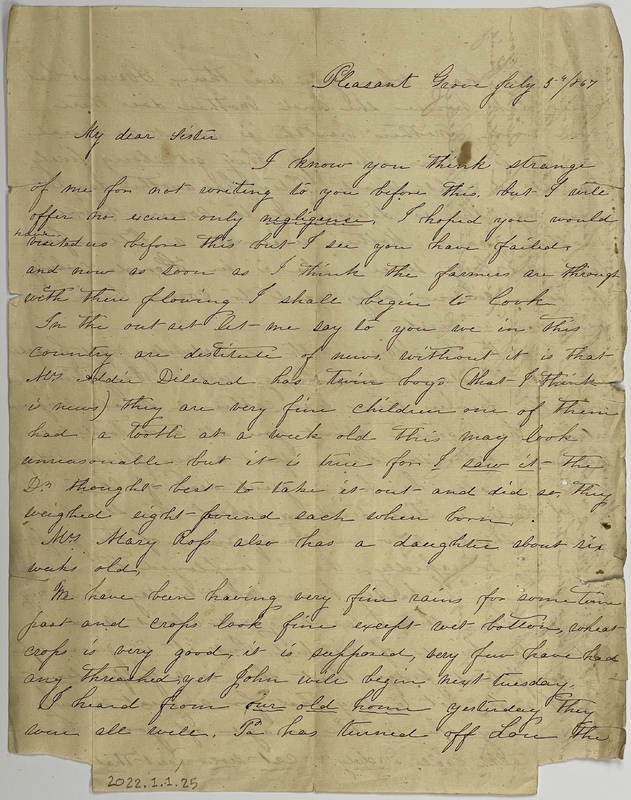 Pleasant Grove July 5th/867
My dear Sister
I know you think strange
of me for not writing to you before this. but I will
offer no excuse only negligence, I hoped you would
have visited us before this but I see you have failed.
and now as soon as I think the farmers are through
with there plowing I shall begin to look
In the out set let me say to you we in this
country are destitute of news. without it is that
Mrs Addie Dillard has twin boys (that I think
is news) they are very fine children one of them
had a tooth at a week old this may look
unreasonable but it is true for I saw it the
Dr thought best to take it out and did so, They
weighed eight pound each when born.
Mrs Mary Ross also has a daughter about six
weeks old,
We have been having very fine rains for some time
past and crops look fine except wet bottom, wheat
crops is very good, it is supposed, very few have had
any threashed yet John will begin next tuesday.
I heard from our old home yesterday they
were all well. Pa has turned off Lou the
2022.1.1.25